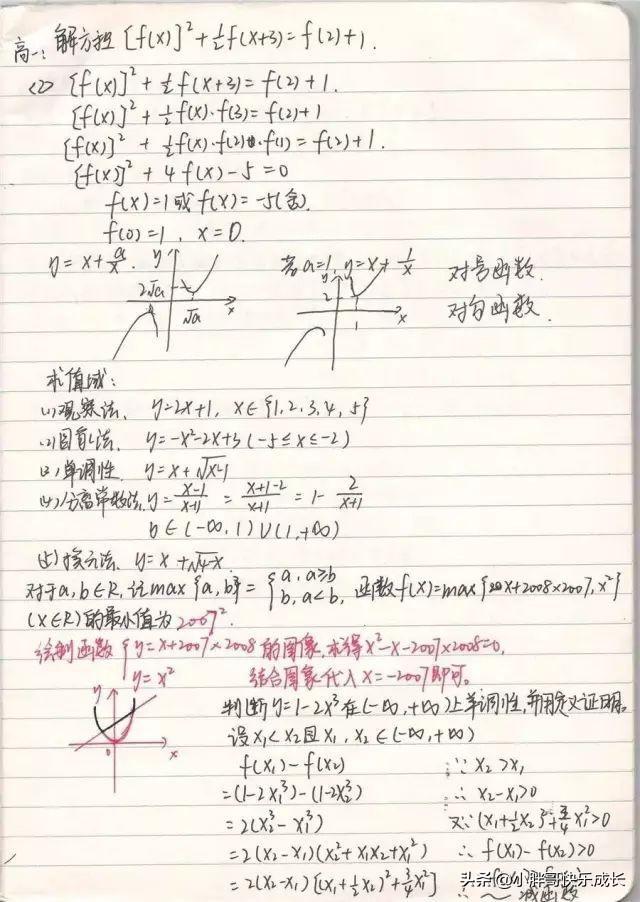 高一: 解方程 [f(x)]²+½f(x+3)=f(2)+1.
<2> [f(x)]²+½f(x+3)=f(2)+1.
[f(x)]²+½f(x)·f(3)=f(2)+1
[f(x)]²+½f(x)·f(2)·f(1)=f(2)+1.
[f(x)]²+4f(x)-5=0
f(x)=1或f(x)=-5(舍).
f(0)=1, x=0.
y=x+a/x. y 2√a √a x 若a=1, y=x+1/x y 2 1 x 对号函数.
对勾函数.
求值域:
(1)观察法. y=2x+1, x∈{1,2,3,4,5}
(2)图象法. y=-x²-2x+3(-5≤x≤-2)
(3)单调性. y=x+√x-1
(4)分离常数法. y=x-1/x+1=x+1-2/x+1=1-2/x+1
b∈(-∞,1)∪(1,+∞)
(5)换元法. y=x+√4-x.
对于a,b∈R,记max{a,b}={a,a≥b b,a<b, 函数f(x)=max{x+2008×2007,x²}
(x∈R)的最小值为2007².
绘制函数{y=x+2007×2008 y=x²的图像,求得x²-x-2007×2008=0,
结合图象代入x=-2007即可。
y 0 x
判断y=1-2x³在(-∞,+∞)上单调性,并用定义证明。
设x₁<x₂且x₁,x₂∈(-∞,+∞)
f(x₁)-f(x₂) ∵x₂>x₁
=(1-2x₁³)-(1-2x₂³) ∴x₂-x₁>0
=2(x₂³-x₁³) 又∵(x₁+½x₂)²+¾x₁²>0
=2(x₂-x₁)(x₂²+x₁x₂+x₁²) ∴f(x₁)-f(x₂)>0
=2(x₂-x₁)[(x₁+½x₂)²+¾x₁²] ∴
∴~减函数
头条@小胖哥快乐成长